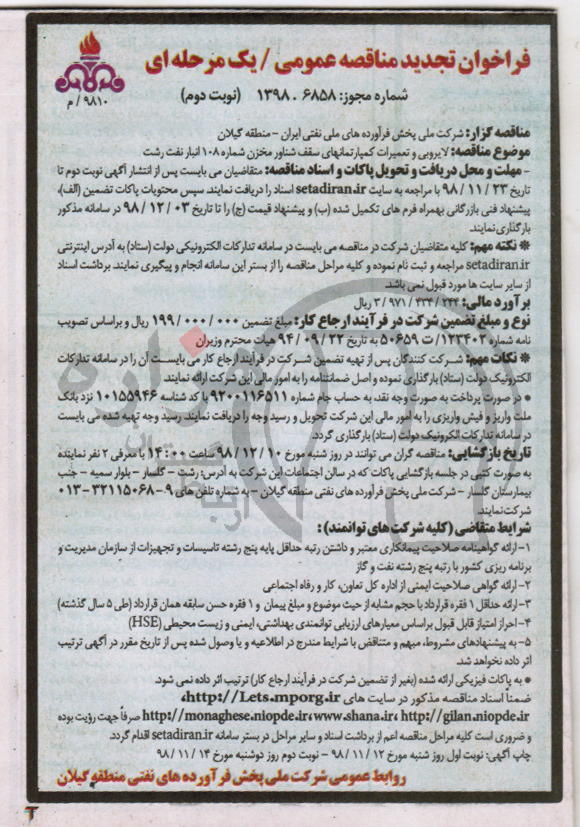 فراخوان تجدید مناقصه عمومی / یک مرحله ای
شماره مجوز: ۶۸۵۸ . ۱۳۹۸ (نوبت دوم)
۹۸۱۰ / م
مناقصه گزار: شرکت ملی پخش فرآورده های ملی نفتی ایران - منطقه گیلان
موضوع مناقصه: لایروبی و تعمیرات کمپارتمانهای سقف شناور مخزن شماره ۱۰۸ انبار نفت رشت
- مهلت و محل دریافت و تحویل پاکات و اسناد مناقصه: متقاضیان می بایست پس از انتشار آگهی نوبت دوم تا
تاریخ ۲۳ / ۱۱ / ۹۸ با مراجعه به سایت setadiran.ir اسناد را دریافت نمایند. سپس محتویات پاکات تضمین (الف)،
پیشنهاد فنی بازرگانی بهمراه فرم های تکمیل شده (ب) و پیشنهاد قیمت (ج) را تا تاریخ ۰۳ / ۱۲ / ۹۸ در سامانه مذکور
بارگذاری نمایند.
※ نکته مهم: کلیه متقاضیان شرکت در مناقصه می بایست در سامانه تدارکات الکترونیکی دولت (ستاد) به آدرس اینترنتی
setadiran.ir مراجعه و ثبت نام نموده و کلیه مراحل مناقصه را از بستر این سامانه انجام و پیگیری نمایند. برداشت اسناد
از سایر سایت ها مورد قبول نمی باشد.
برآورد مالی: ۲۴۴ / ۴۳۴ / ۹۷۱ / ۳ ریال
نوع و مبلغ تضمین شرکت در فرآیند ارجاع کار: مبلغ تضمین ۰۰۰ / ۰۰۰ / ۱۹۹ ریال و براساس تصویب
نامه شماره ۱۲۳۴۰۲ / ت ۵۰۶۵۹ به تاریخ ۲۲ / ۰۹ / ۹۴ هیات محترم وزیران
※ نکات مهم: شرکت کنندگان پس از تهیه تضمین شرکت در فرآیند ارجاع کار می بایست آن را در سامانه تدارکات
الکترونیک دولت (ستاد) بارگذاری نموده و اصل ضمانتنامه را به امور مالی این شرکت ارائه نمایند.
• در صورت پرداخت به صورت وجه نقد به حساب جام شماره ۹۲۰۰۱۱۶۵۱۱ با کد شناسه ۱۰۱۵۵۹۴۶ نزد بانک
ملت واریز و فیش واریزی را به امور مالی این شرکت تحویل و رسید وجه را دریافت نمایند. رسید وجه تهیه شده می بایست
در سامانه تدارکات الکترونیک دولت (ستاد) بارگذاری گردد.
تاریخ بازگشایی: مناقصه گران می توانند در روز شنبه مورخ ۱۰ / ۱۲ / ۹۸ ساعت ۰۰ : ۱۴ با معرفی ۲ نفر نماینده
به صورت کتبی در جلسه بازگشایی پاکات که در سالن اجتماعات این شرکت به آدرس: رشت - گلسار - بلوار سمیه - جنب
بیمارستان گلسار - شرکت ملی پخش فرآورده های نفتی منطقه گیلان - به شماره تلفن های ۹-۳۲۱۱۵۰۶۸-۰۱۳
شرکت نمایند.
شرایط متقاضی (کلیه شرکت های توانمند) :
۱- ارائه گواهینامه صلاحیت پیمانکاری معتبر و داشتن رتبه حداقل پایه پنج رشته تاسیسات و تجهیزات از سازمان مدیریت و
برنامه ریزی کشور یا رتبه پنج رشته نفت و گاز
۲- ارائه گواهی صلاحیت ایمنی از اداره کل تعاون، کار و رفاه اجتماعی
۳- ارائه حداقل ۱ فقره قرارداد با حجم مشابه از حیث موضوع و مبلغ پیمان و ۱ فقره حسن سابقه همان قرارداد (طی ۵ سال گذشته)
۴- احراز امتیاز قابل قبول براساس معیارهای ارزیابی توانمندی بهداشتی، ایمنی و زیست محیطی (HSE)
۵- به پیشنهادهای مشروط، مبهم و متناقض با شرایط مندرج در اطلاعیه و یا وصول شده پس از تاریخ مقرر در آگهی ترتیب
اثر داده نخواهد شد.
• به پاکات فیزیکی ارائه شده (بغیر از تضمین شرکت در فرآیند ارجاع کار) ترتیب اثر داده نمی شود.
ضمناً اسناد مناقصه مذکور در سایت های http://Lets.mporg.ir،
http://gilan.niopdc.ir ،www.shana.ir ،http://monaghese.niopdc.ir صرفاً جهت رؤیت بوده
و ضروری است کلیه مراحل مناقصه اعم از برداشت اسناد و سایر مراحل در بستر سامانه setadiran.ir اقدام گردد.
چاپ آگهی: نوبت اول روز شنبه مورخ ۱۲ / ۱۱ / ۹۸ - نوبت دوم روز دوشنبه مورخ ۱۴ / ۱۱ / ۹۸
روابط عمومی شرکت ملی پخش فرآورده های نفتی منطقه گیلان